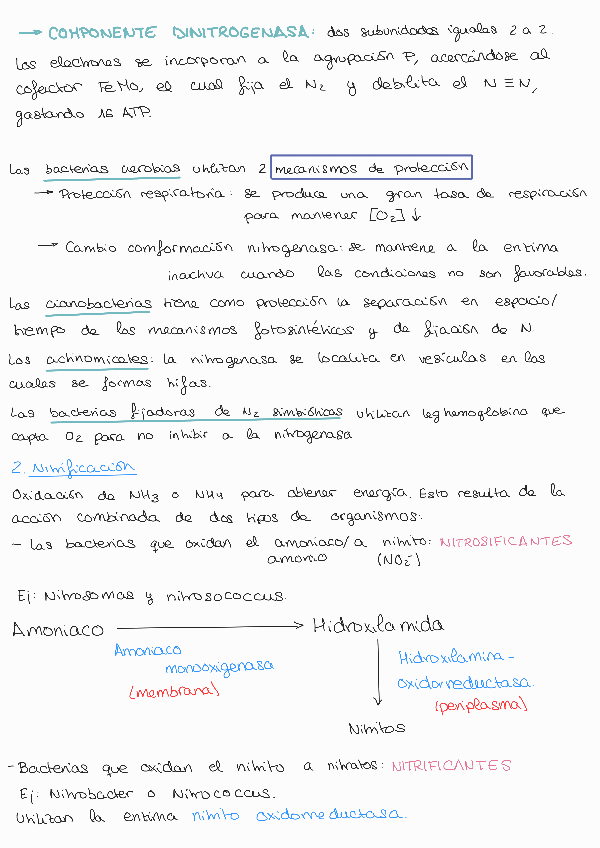 → COMPONENTE DINITROGENASA: dos subunidades iguales 2 a 2.
Los electrones se incorporan a la agrupación P, acercándose al
cofactor FeMo, el cual fija el N₂ y debilita el N≡N,
gastando 16 ATP.
Las bacterias aerobias utilizan 2 mecanismos de protección
→ Protección respiratoria: se produce una gran tasa de respiración
para mantener [O₂]↓
→ Cambio comformación nitrogenasa: se mantiene a la enzima
inactiva cuando las condiciones no son favorables.
Las cianobacterias tiene como protección la separación en espacio/
tiempo de los mecanismos fotosintéticos y de fijación de N.
Los actinomicetes: la nitrogenasa se localiza en vesículas en las
cuales se formas hifas.
Las bacterias fijadoras de N₂ simbióticas utilizan leghemoglobina que
capta O₂ para no inhibir a la nitrogenasa
2. Nitrificación
Oxidación de NH3 o NH4 para obtener energía. Esto resulta de la
acción combinada de dos tipos de organismos:
- Las bacterias que oxidan el amoniaco/a nitrito: NITROSIFICANTES
amonio (NO₂⁻)
Ej: Nitrosomas y nitrosococcus.
Amoniaco → Hidroxilamida
Amoniaco
monooxigenasa
(membrana)
Hidroxilamina-
oxidorreductasa.
(periplasma)
Nitritos
- Bacterias que oxidan el nitrito a nitratos: NITRIFICANTES
Ej: Nitrobacter o Nitrococcus.
Utilizan la enzima nitrito oxidorreductasa.